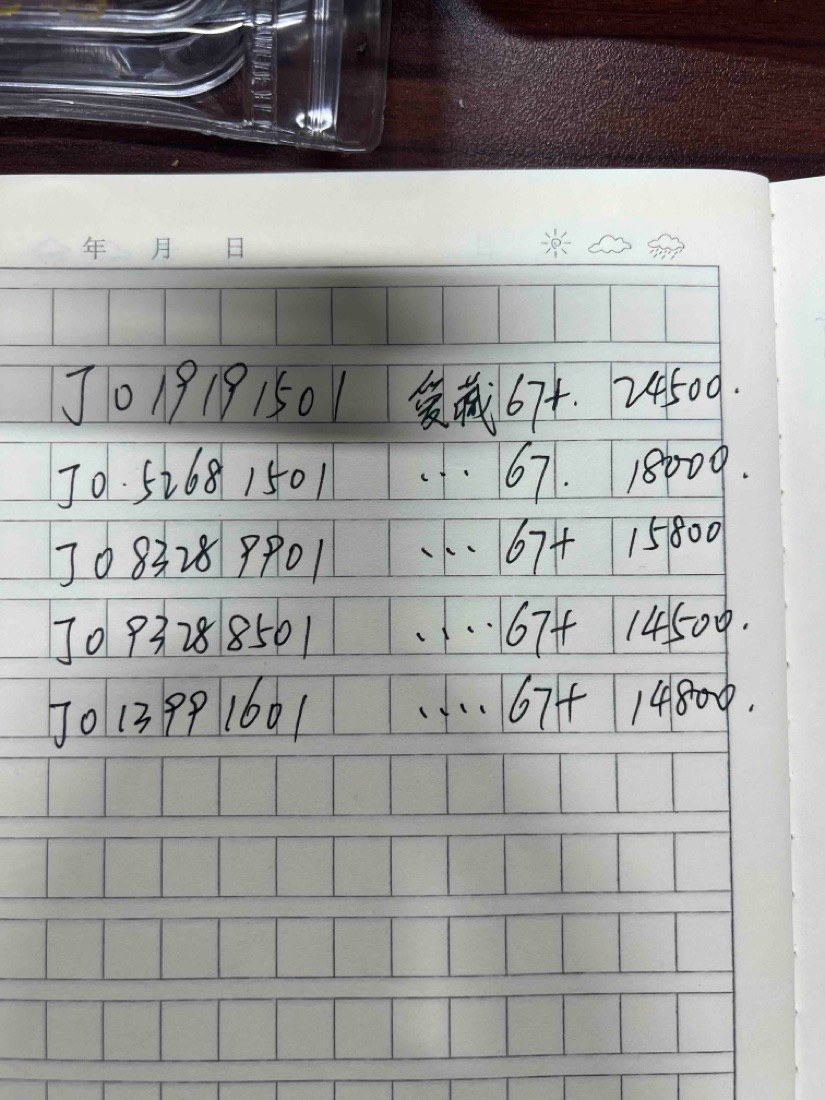 年 月 日
J019191501 爱藏 67+. 24500.
J0.52681501 ... 67. 18000.
J083289901 ... 67+ 15800
J093288501 .... 67+ 14500.
J013991601 .... 67+ 14800.